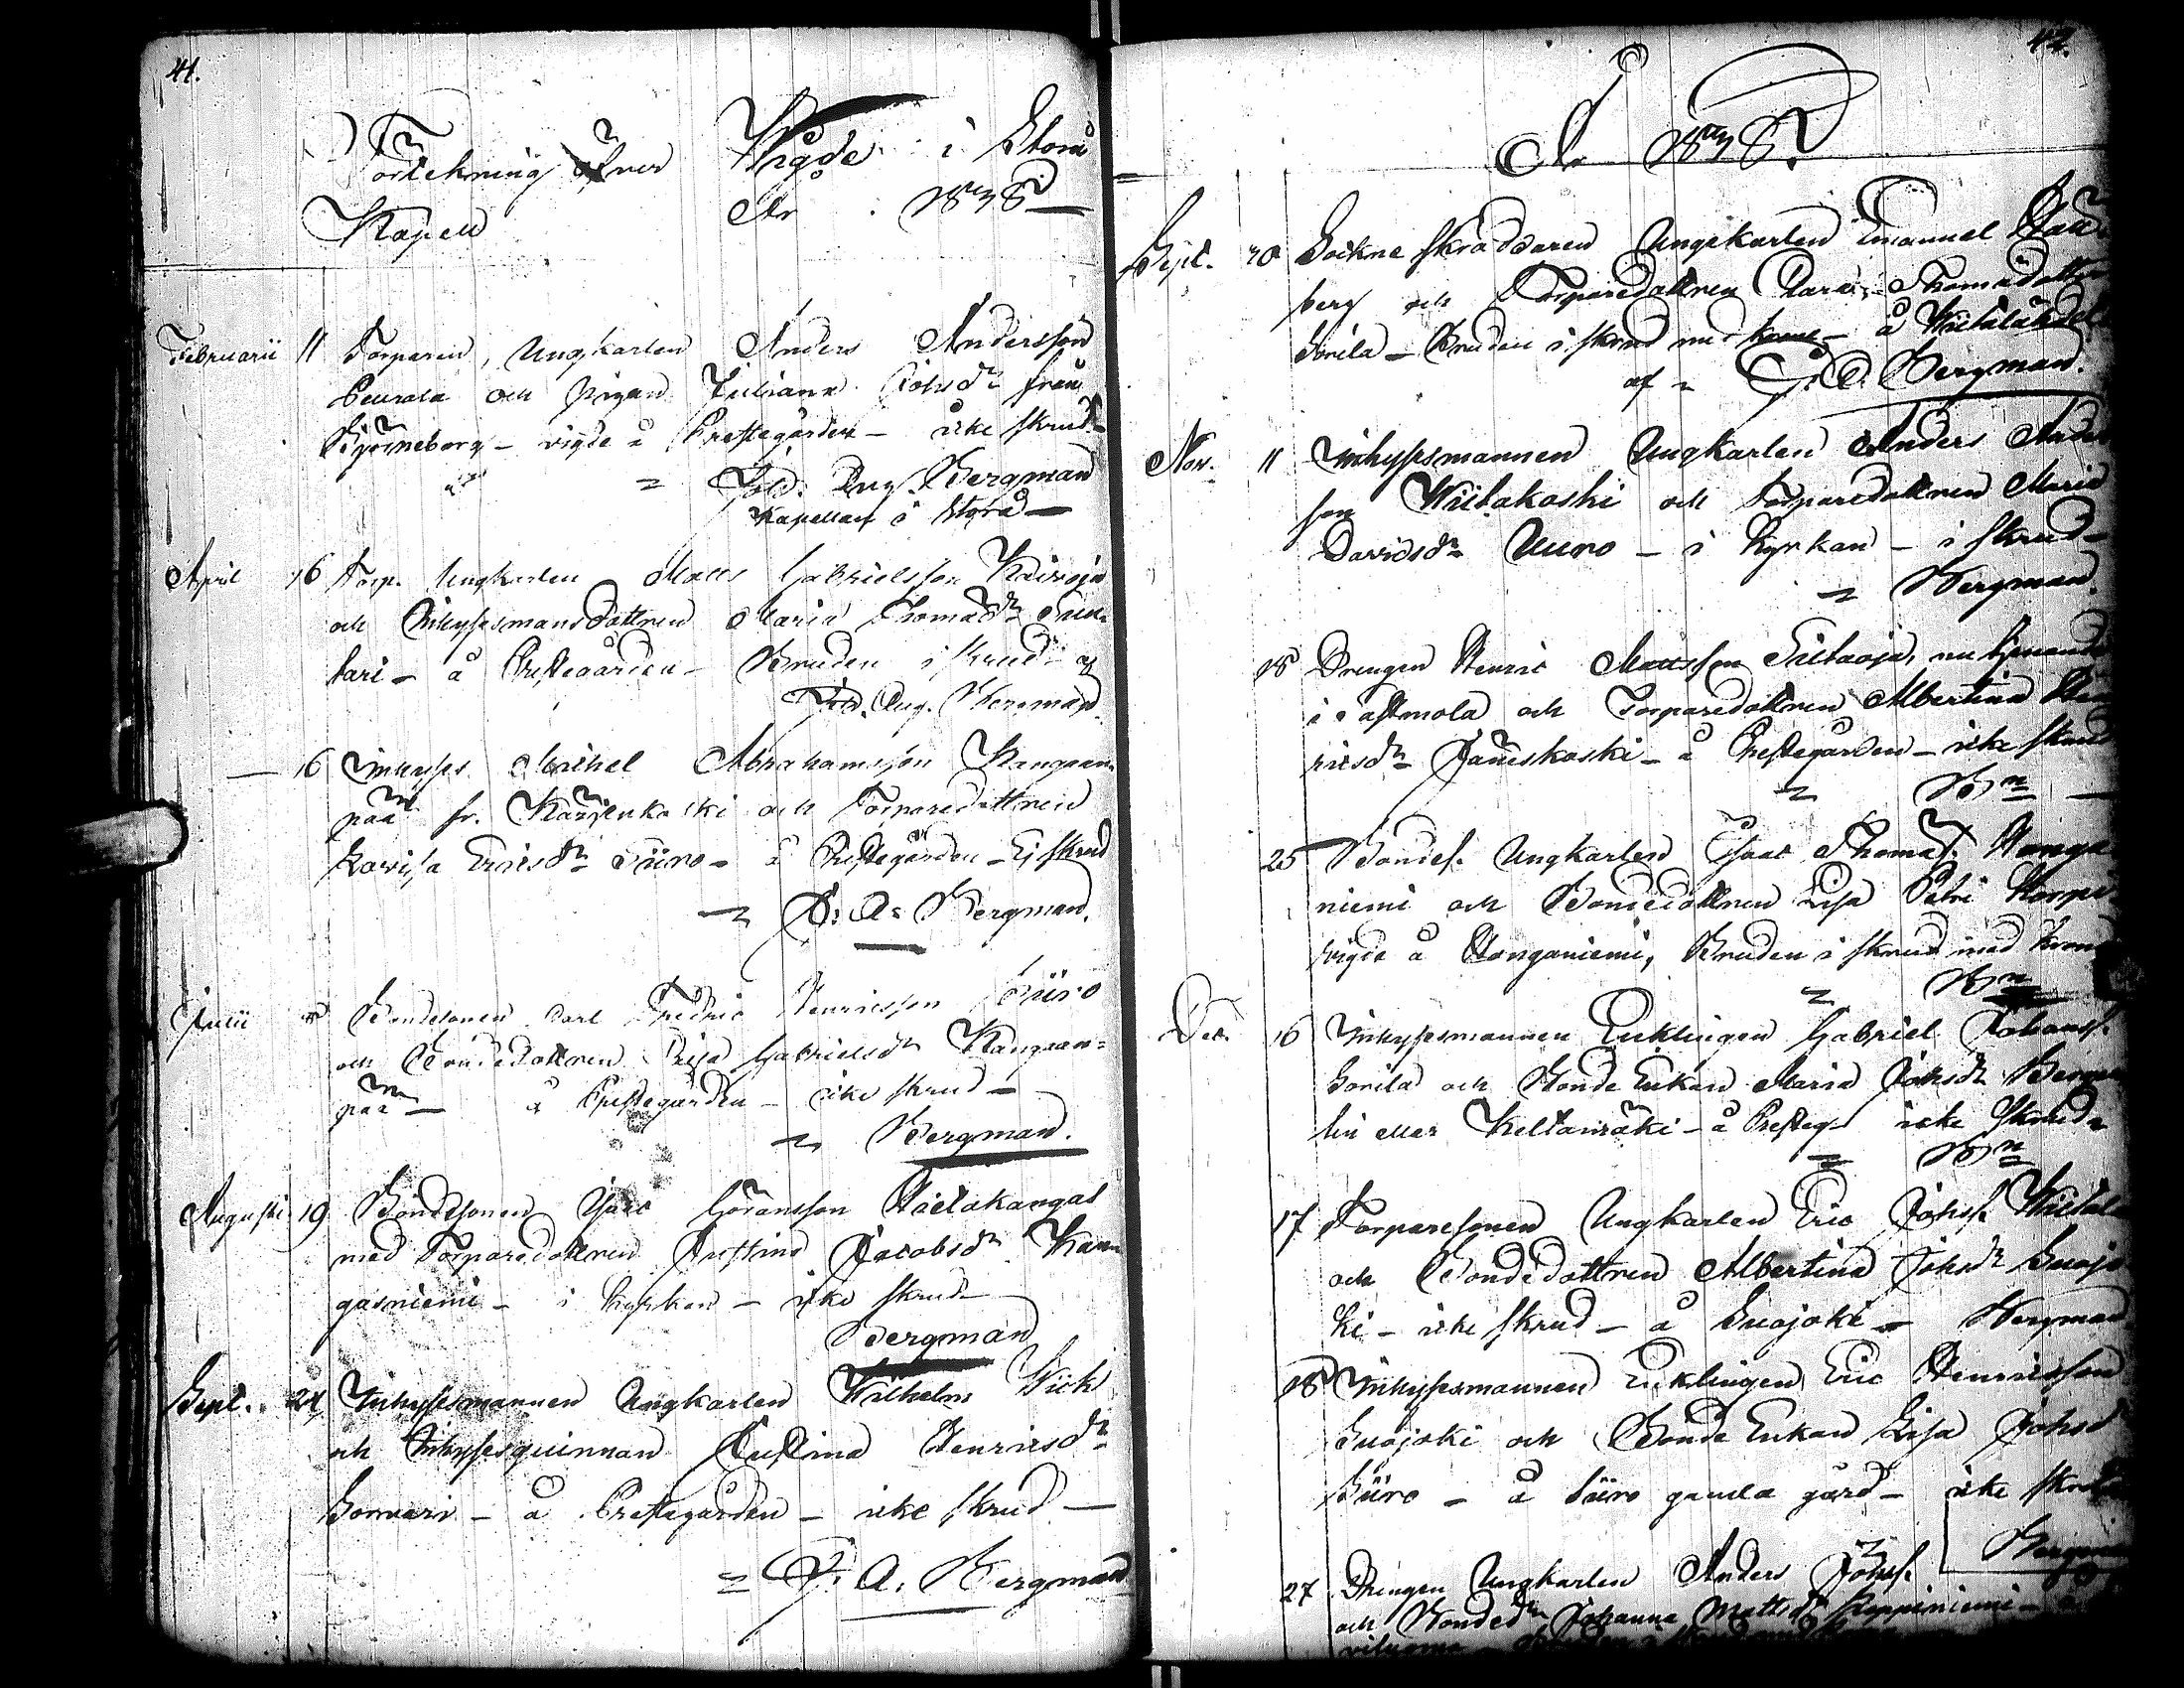 41.
Förtekning öfver Vigde i Storå
Kapell År 1838
Februarii 11 Torparen, Ungkarlen Anders Andersson
Peurala och pigan Juliana Johsdr från
Björneborg - vigde å Prestegården - icke skrud
Joh. Aug. Bergman
Kapellan i Storå
April 16 Torp. Ungkarlen Matts Gabrielsson
och Inhysesmansdottren Maria Thomasdr
tari - å Prestegården - Bruden i skrud af
Joh. Aug. Bergman
16 Inhyses Michel Abrahamsson Kangaan-
pää fr. Kärjenkoski och Torparedottren
Lovisa Ericsdr Siiro - å Prestegården - Ej skrud
J. A. Bergman.
Julii 8 Bondesonen Carl Fredric Henricsson Siiro
och Bondedottren Lisa Gabrielsdr Kangaan-
pää - å Prestegården - icke skrud -
Bergman.
Augusti 19 Bondesonen Isaac Göransson Wiitakangas
med Torparedottren Justina Jacobsdr Kan-
gasniemi - i kyrkan - icke skrud
Bergman
Sept. 24 Inhysesmannen Ungkarlen Wilhelm Wick
och Inhysesquinnan Justina Henricsdr
- å Prestegården - icke skrud -
J. A. Bergman
42.
År 1838.
Sept. 30 Sockne skräddaren Ungkarlen Emanuel
berg och Torparedottren Clara Thomasdotter
Sorila - Bruden i skrud med krona - å
af J. A. Bergman.
Nov. 11 Inhysesmannen Ungkarlen Anders Anders-
son Wiitakoski och Torparedottren Maria
Davidsdr Uuro - i Kyrkan - i skrud -
Bergman.
18 Drengen Henric Mattsson, nu tjenande
i och Torparedottren Albertina Hen-
ricsdr Jämiskoski - å Prestegården - icke skrud
Bmn
25 Bondes. Ungkarlen Isaac Thomass. Honga
niemi och Bondedottren Lisa Petri
vigde å Honganiemi, Bruden i skrud med krona
Bmn
Dec. 16 Inhysesmannen Enklingen Gabriel Johanss.
Sorila och Bonde Enkan Maria Johsdr
lin eller Keltamäki - å Presteg. icke skrud
Bmn
17 Torparesonen Ungkarlen Eric Johss.
och Bondedottren Albertina Johsdr Suojo
ki - icke skrud - å Suojoki - Bergman
18 Inhysesmannen Enklingen Eric Henricsson
Suojoki och Bonde Enkan Lisa Johsd
Siiro - å Siiro gamla gård - icke skrud
Bergman
27 Drengen Ungkarlen Anders Johss.
och Bondedr Johanna Mattsdr